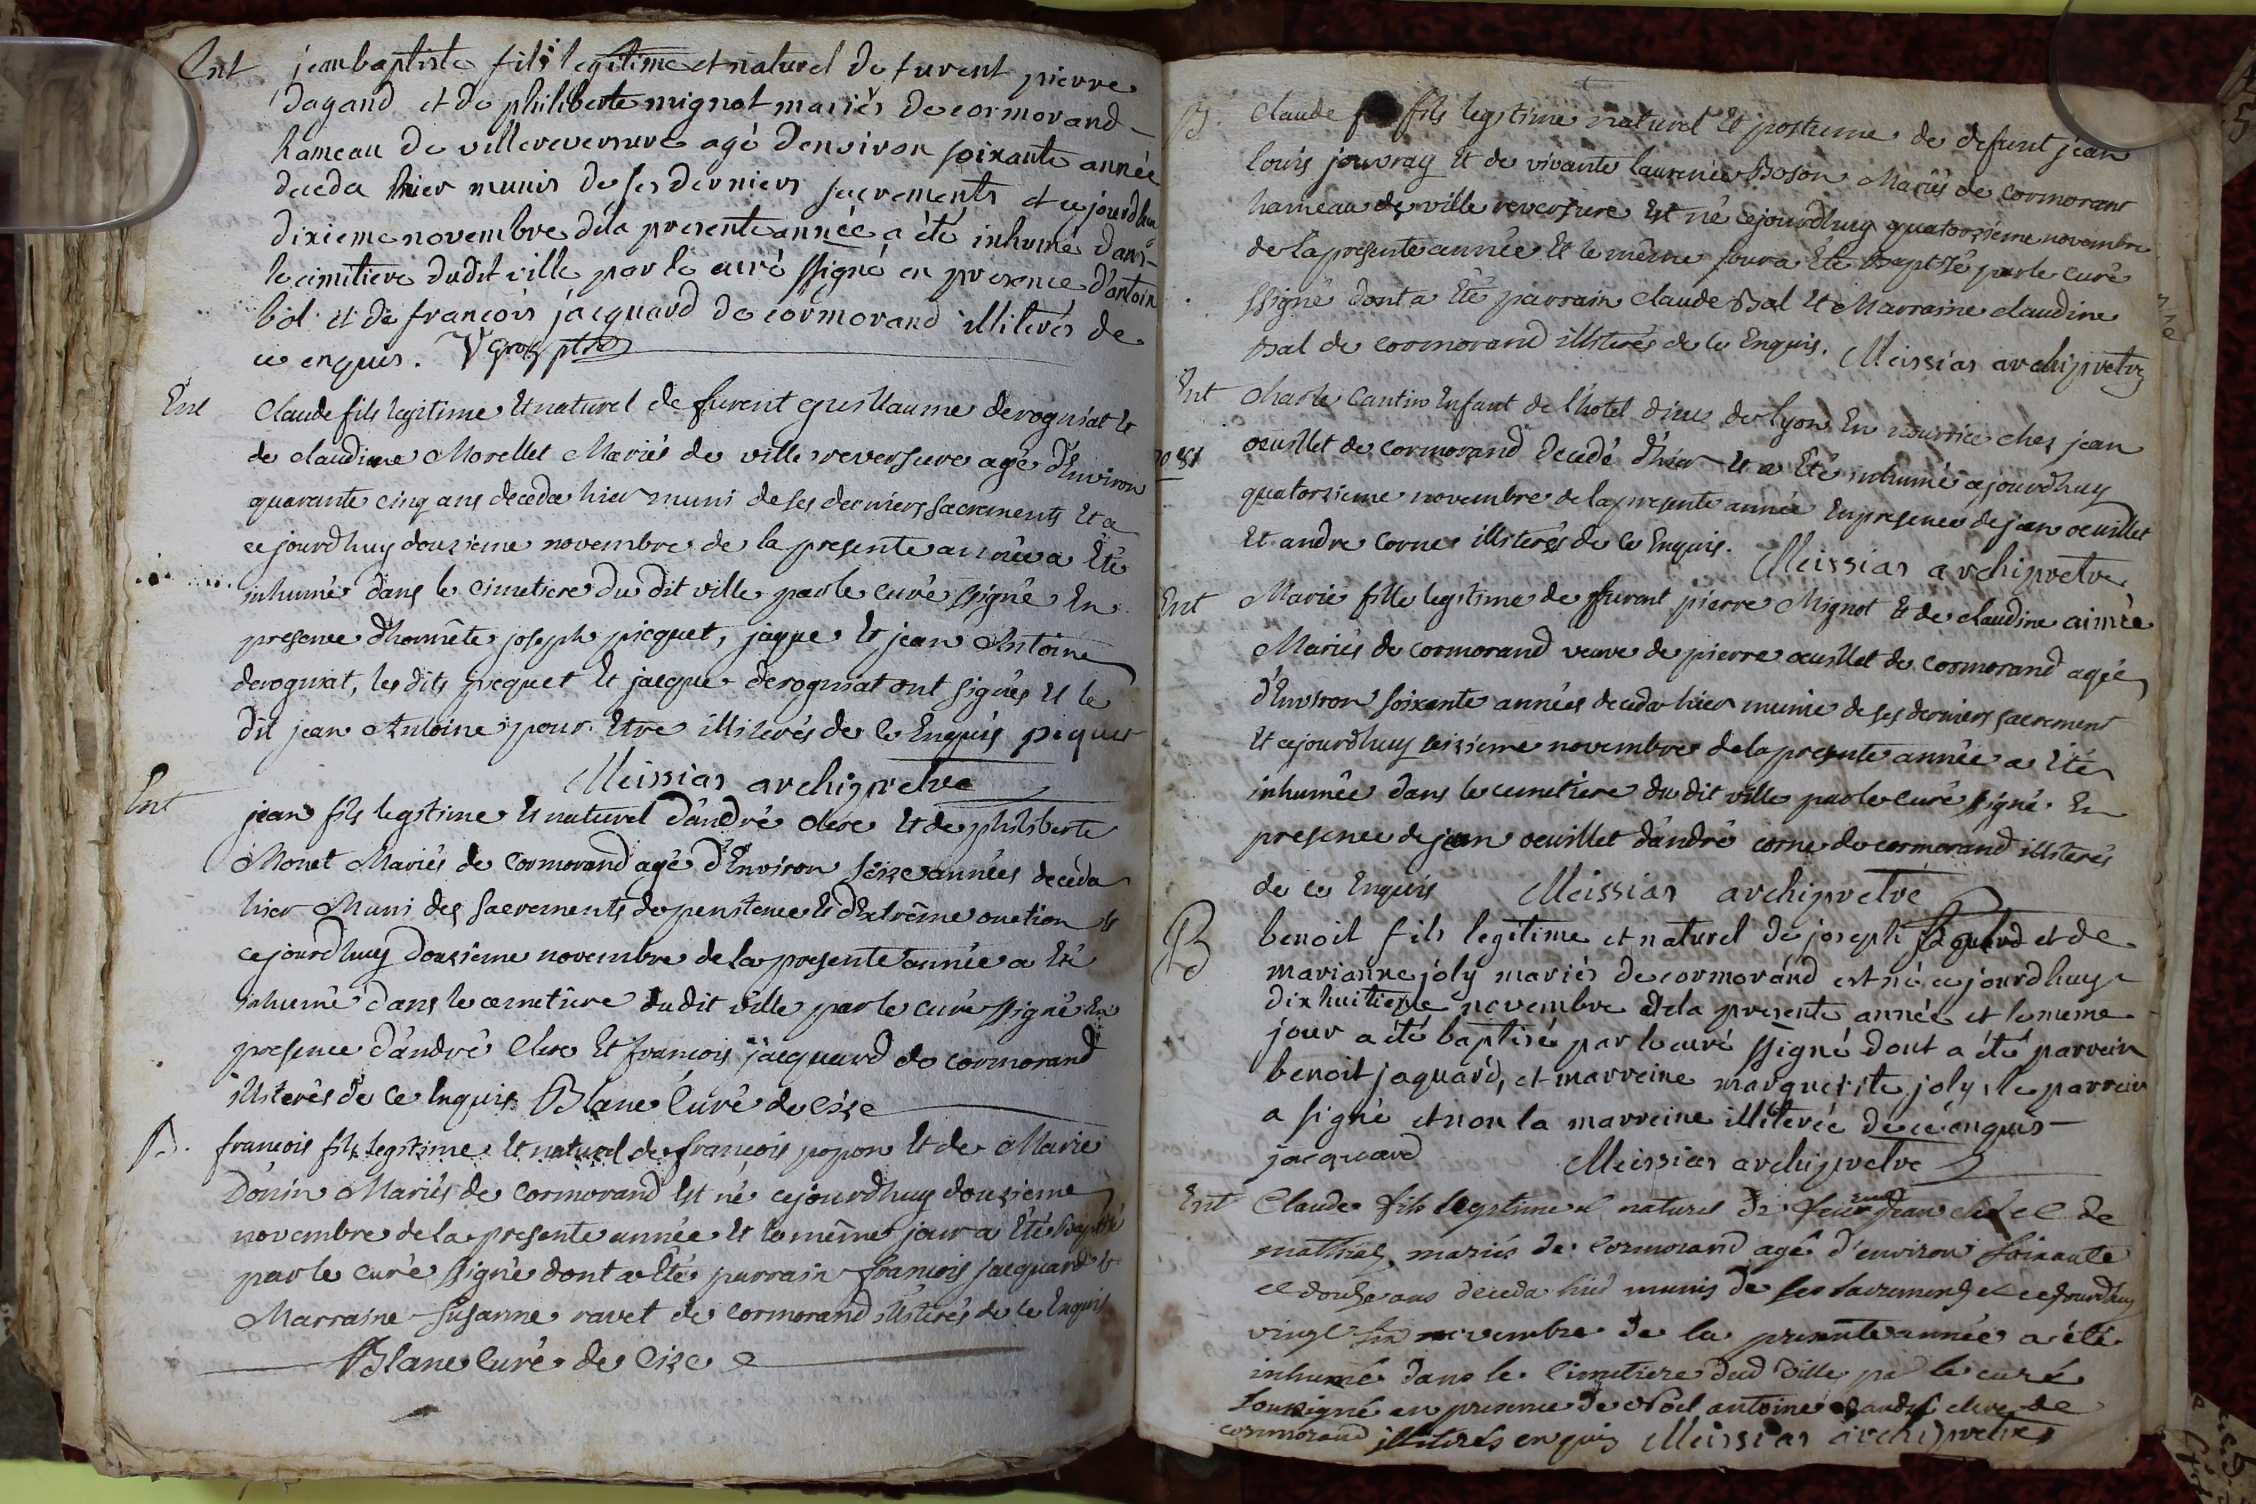 Ent
jean baptiste fils legitime et naturel de furent pierre
dagand et de philiberte mignot mariés de cormorand
hameau de villereversure agé denviron soixante année
deceda hier munis de ses derniers sacrements et cejourdhui
dixieme novembre dela presente année a été inhumé dans
le cimitiere dudit ville par le curé ssigné en presence d'antoin
bol et de francois jacquard de cormorand illiterés de
ce enquis.
Ent
Claude fils legitime Et naturel de furent guillaume derogniat et
de claudine Morellet Mariés de ville reversure agé d'Environ
quarante cinq ans deceda hier muni de ses derniers sacrements Et a
cejourdhuy douzieme novembre de la presente année a Eté
inhumé dans le cimetiere du dit ville par le curé ssigné En
presence d'honnête joseph picquet, jaque Et jean Antoine
derogniat, les dits picquet Et jacque derogniat ont signés Et le
dit jean Antoine pour Etre illiterés de ce Enquis piquet
Meissias archipretre
Ent
jean fils legitime Et naturel d'andré clerc Et de philiberte
Monet Mariés de Cormorand agé d'Environ seize années deceda
hier Muni des sacrements de penitence Et d'Extrême onction Et
cejourdhuy douzieme novembre de la presente année a Eté
inhumé dans le cemetiere du dit ville par le curé ssigné En
presence d'andré Clerc Et francois jacquard de cormorand
illiterés de ce Enquis Blanc Curé de Cize
B.
francois fils legitime Et naturel de francois popon Et de Marie
Donin Mariés de Cormorand Est né cejourdhuy douzieme
novembre de la presente année Et le même jour a Eté baptisé
par le curé ssigné dont a Eté parrain francois jacquard Et
Marraine Susanne ravet de Cormorand illiterés de ce Enquis
Blanc Curé de Cize
B.
Claude fils legitime naturel Et postume de defunt jean
louis jouvray Et de vivante laurence Boson Mariés de Cormorant
hameau de ville reversure Est né cejourdhuy quatorzieme novembre
de la presente année Et le même jour a Eté baptisé par le curé
ssigné dont a Eté parrain Claude Bal Et Marraine claudine
Bal de Cormorand illiterés de ce Enquis. Meissias archipretre
Ent
Charle Cantin Enfant de l'hotel dieu de lyon En nourrice ches jean
oeuillet de cormorand decedé d'hier Et a Eté inhumé cejourdhuy
quatorzieme novembre de la presente année En presence de jean oeuillet
Et andre Corne illiterés de ce Enquis. Meissias archipretre
Ent
Marie fille legitime de furent pierre Mignot Et de claudine aimée
Mariés de cormorand veuve de pierre oeuillet de Cormorand agée
d'Environ soixante années deceda hier munie de ses derniers sacrement
Et cejourdhuy seizieme novembre de la presente année a Eté
inhumée dans le cemetiere du dit ville par le curé signé En
presence de jean oeuillet d'andré corne de cormorand illiterés
de ce Enquis Meissias archipretre
B
benoit fils legitime et naturel de joseph et de
marianne joly mariés de cormorand est né cejourdhuy
dixhuitieme novembre dela presente année et le meme
jour a été baptisé par le curé ssigné dont a été parrein
benoit jaquard, et marreine marguerite joly, le parrein
a signé et non la marreine illiterée de ce enquis
jacquard Meissias archipretre
Ent
Claude fils legitime et naturel de jean et de
mariés de Cormorand agé d'environ soixante
et douze ans deceda hier munis de ses sacrements et cejourdhuy
vingt six novembre de la presente année a été
inhumé dans le Cimitiere dud ville par le curé
soussigné en presence de Noel antoine clerc de
cormorand illiterés enquis Meissias archipretre